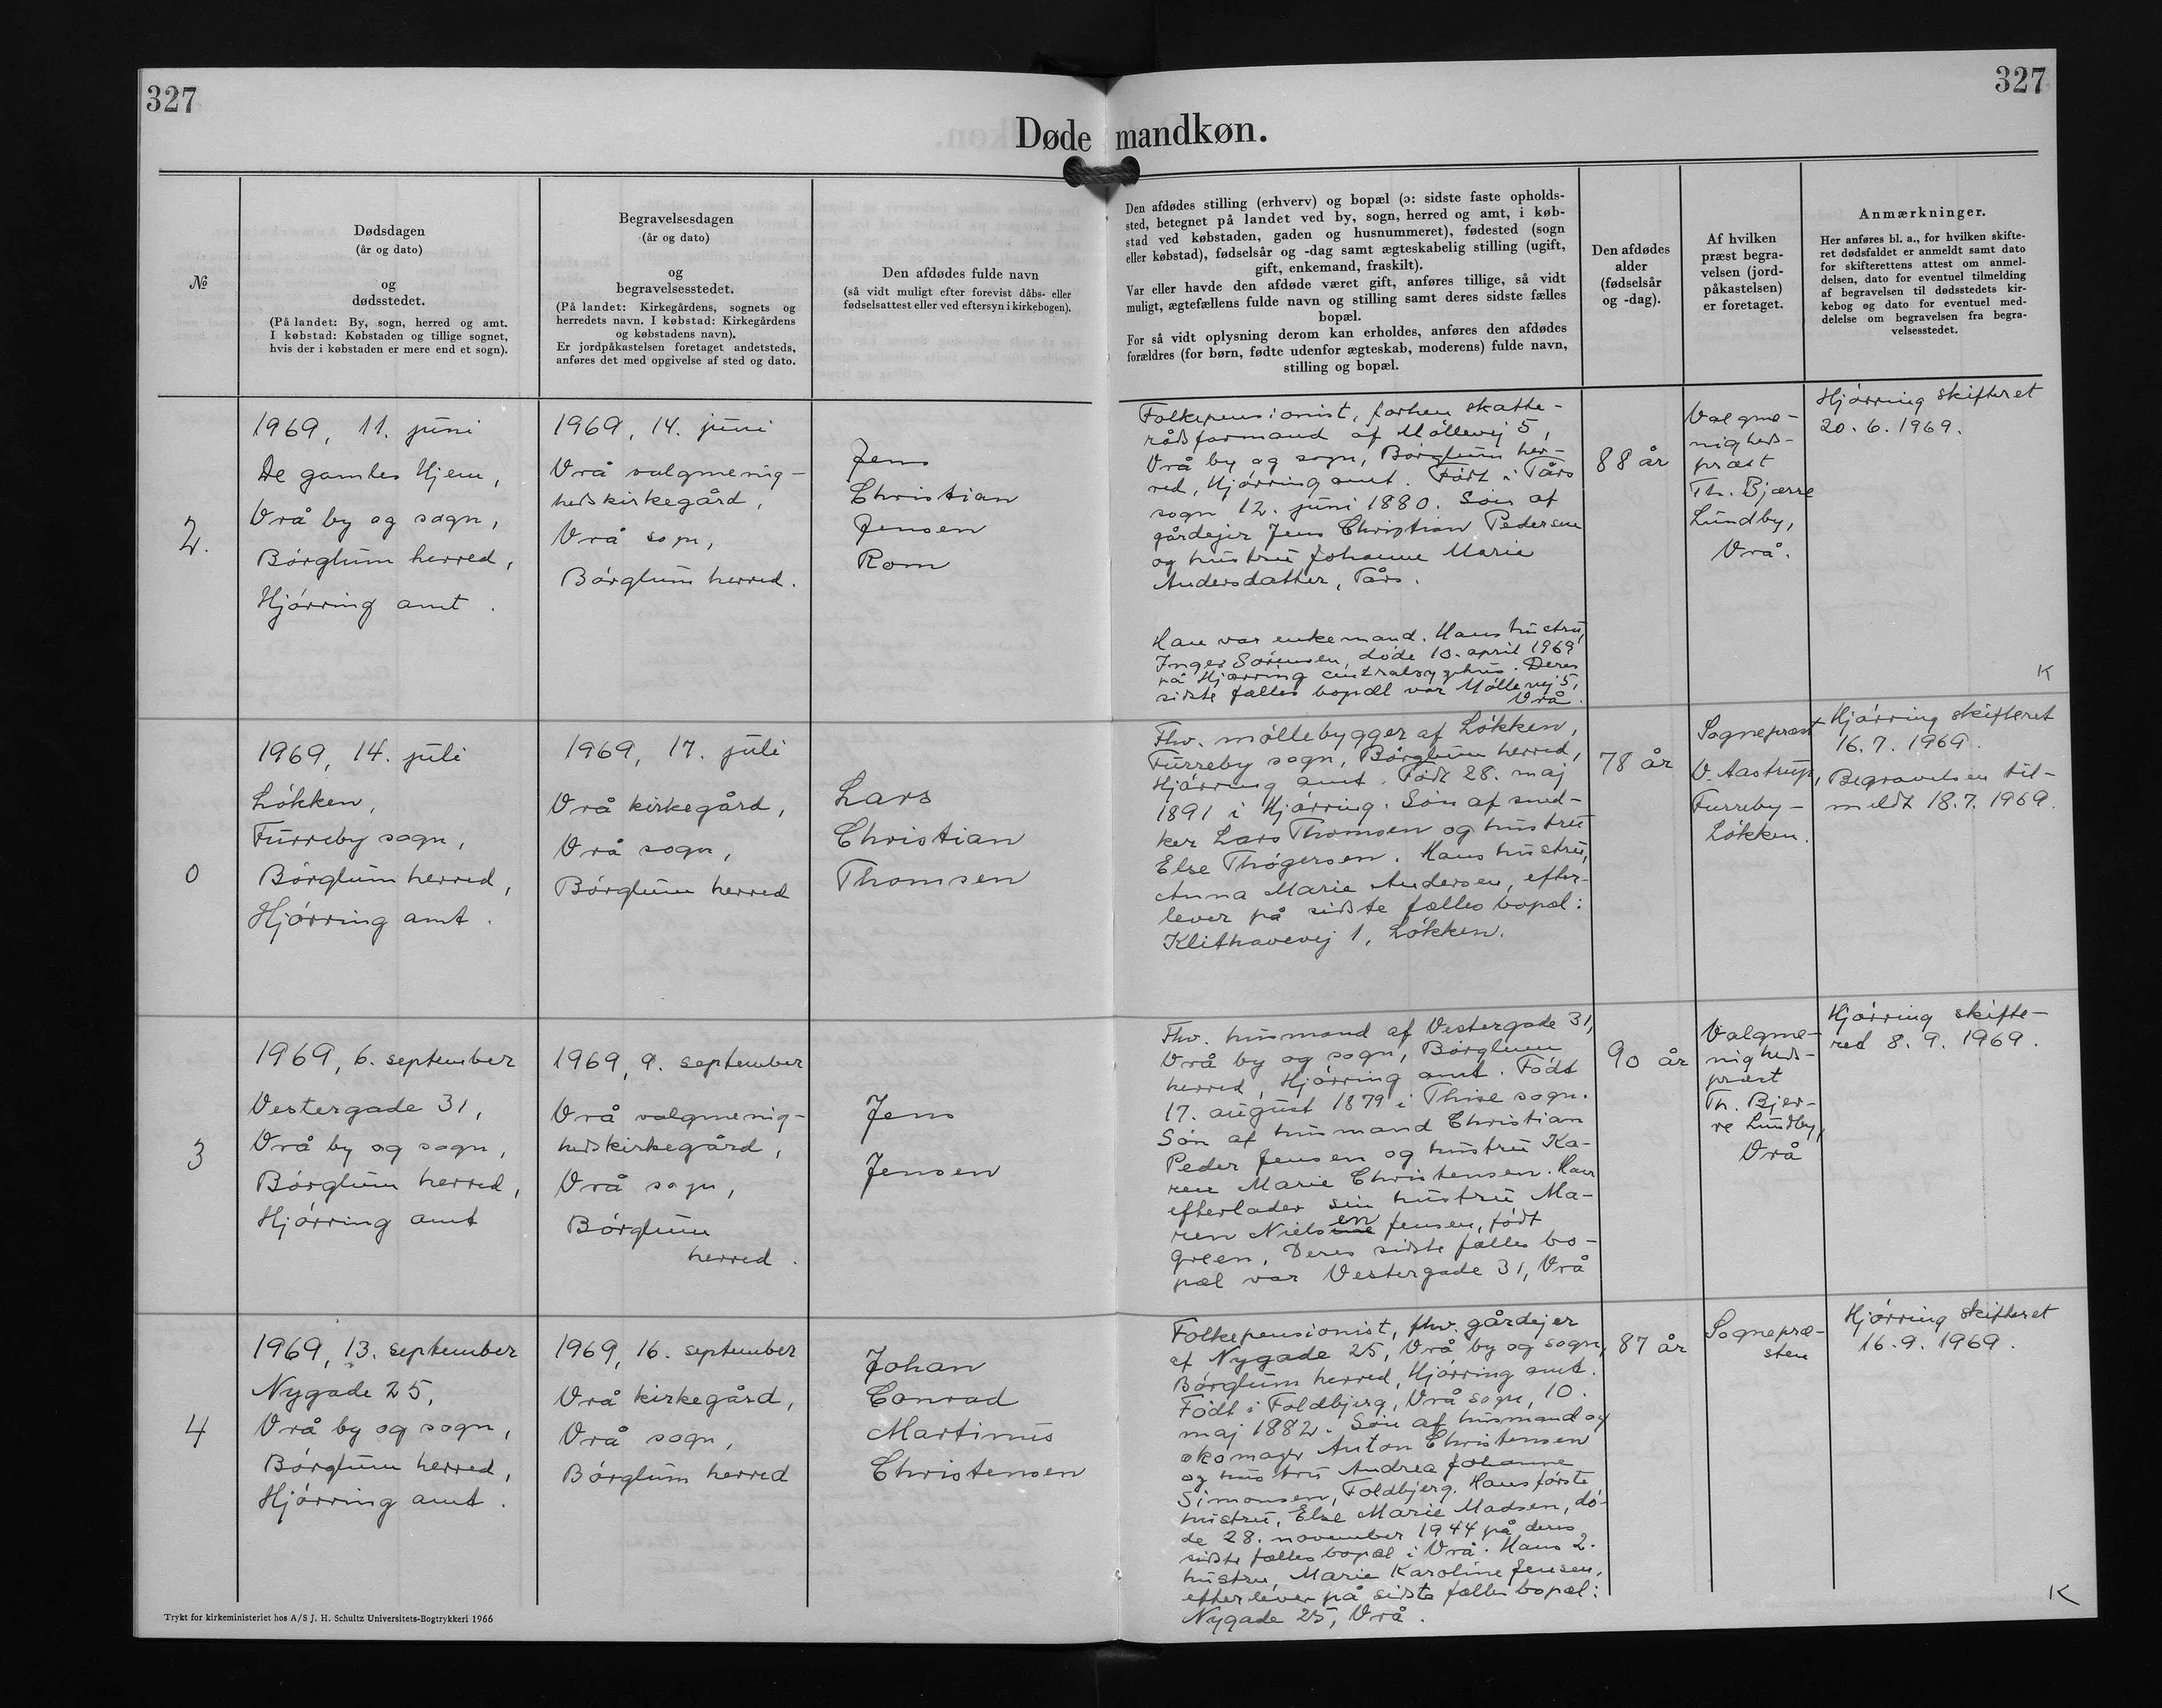 327
327
Døde mandkøn.
№
Dødsdagen
(år og dato)
og
dødsstedet.
(På landet: By, sogn, herred og amt.
I købstad: Købstaden og tillige sognet,
hvis der i købstaden er mere end et sogn).
Begravelsesdagen
(år og dato)
og
begravelsesstedet.
(På landet: Kirkegårdens, sognets og
herredets navn. I købstad: Kirkegårdens
og købstadens navn).
Er jordpåkastelsen foretaget andetsteds,
anføres det med opgivelse af sted og dato.
Den afdødes fulde navn
(så vidt muligt efter forevist dåbs- eller
fødselsattest eller ved eftersyn i kirkebogen).
Den afdødes stilling (erhverv) og bopæl (ɔ: sidste faste opholds-
sted, betegnet på landet ved by, sogn, herred og amt, i køb-
stad ved købstaden, gaden og husnummeret), fødested (sogn
eller købstad), fødselsår og -dag samt ægteskabelig stilling (ugift,
gift, enkemand, fraskilt).
Var eller havde den afdøde været gift, anføres tillige, så vidt
muligt, ægtefællens fulde navn og stilling samt deres sidste fælles
bopæl.
For så vidt oplysning derom kan erholdes, anføres den afdødes
forældres (for børn, fødte udenfor ægteskab, moderens) fulde navn,
stilling og bopæl.
Den afdødes
alder
(fødselsår
og -dag).
Af hvilken
præst begra-
velsen (jord-
påkastelsen)
er foretaget.
Anmærkninger.
Her anføres bl. a., for hvilken skifte-
ret dødsfaldet er anmeldt samt dato
for skifterettens attest om anmel-
delsen, dato for eventuel tilmelding
af begravelsen til dødsstedets kir-
kebog og dato for eventuel med-
delelse om begravelsen fra begra-
velsesstedet.
2.
1969, 11. juni
De gamles Hjem,
Vrå by og sogn,
Børglum herred,
Hjørring amt.
1969, 14. juni
Vrå valgmenig-
hedskirkegård,
Vrå sogn,
Børglum herred.
Jens
Christian
Jensen
Rom
Folkepensionist, forhen skatte-
rådsformand af Møllevej 5,
Vrå by og sogn, Børglum her-
red, Hjørring amt. Født i Tårs
sogn 12. juni 1880. Søn af
gårdejer Jens Christian Pedersen
og hustru Johanne Marie
Andersdatter, Tårs.
Han var enkemand. Hans hustru,
Inger Sørensen, døde 10. april 1969
på Hjørring centralsygehus. Deres
sidste fælles bopæl var Møllevej 5,
Vrå.
88 år
Valgme-
nigheds-
præst
Th. Bjerre
Lundby,
Vrå.
Hjørring skifteret
20. 6. 1969.
K
0
1969, 14. juli
Løkken,
Furreby sogn,
Børglum herred,
Hjørring amt.
1969, 17. juli
Vrå kirkegård,
Vrå sogn,
Børglum herred
Lars
Christian
Thomsen
Fhv. møllebygger af Løkken,
Furreby sogn, Børglum herred,
Hjørring amt. Født 28. maj
1891 i Hjørring. Søn af sned-
ker Lars Thomsen og hustru
Else Thøgersen. Hans hustru,
Anna Marie Andersen, efter-
lever på sidste fælles bopæl:
Klithavevej 1, Løkken.
78 år
Sognepræst
V. Aastrup,
Furreby-
Løkken.
Hjørring skifteret
16. 7. 1969.
Begravelsen til-
meldt 18. 7. 1969.
3
1969, 6. september
Vestergade 31,
Vrå by og sogn,
Børglum herred,
Hjørring amt
1969, 9. september
Vrå valgmenig-
hedskirkegård,
Vrå sogn,
Børglum
herred.
Jens
Jensen
Fhv. husmand af Vestergade 31,
Vrå by og sogn, Børglum
herred, Hjørring amt. Født
17. august 1879 i Thise sogn.
Søn af husmand Christian
Peder Jensen og hustru Ka-
ren Marie Christensen. Han
efterlader sin hustru Ma-
ren Nielsen Jensen, født
Green. Deres sidste fælles bo-
pæl var Vestergade 31, Vrå
90 år
Valgme-
nigheds-
præst
Th. Bjer-
re Lundby,
Vrå
Hjørring skifte-
ret 8. 9. 1969.
4
1969, 13. september
Nygade 25,
Vrå by og sogn,
Børglum herred,
Hjørring amt.
1969, 16. september
Vrå kirkegård,
Vrå sogn,
Børglum herred
Johan
Conrad
Martinus
Christensen
Folkepensionist, fhv. gårdejer
af Nygade 25, Vrå by og sogn,
Børglum herred, Hjørring amt.
Født i Foldbjerg, Vrå sogn, 10.
maj 1882. Søn af husmand og
skomager Anton Christensen
og hustru Andrea Johanne
Simonsen, Foldbjerg. Hans første
hustru, Else Marie Madsen, dø-
de 28. november 1944 på deres
sidste fælles bopæl i Vrå. Hans 2.
hustru, Marie Karoline Jensen,
efterlever på sidste fælles bopæl:
Nygade 25, Vrå.
87 år
Sognepræ-
sten
Hjørring skifteret
16. 9. 1969.
K
Trykt for kirkeministeriet hos A/S J. H. Schultz Universitets-Bogtrykkeri 1966